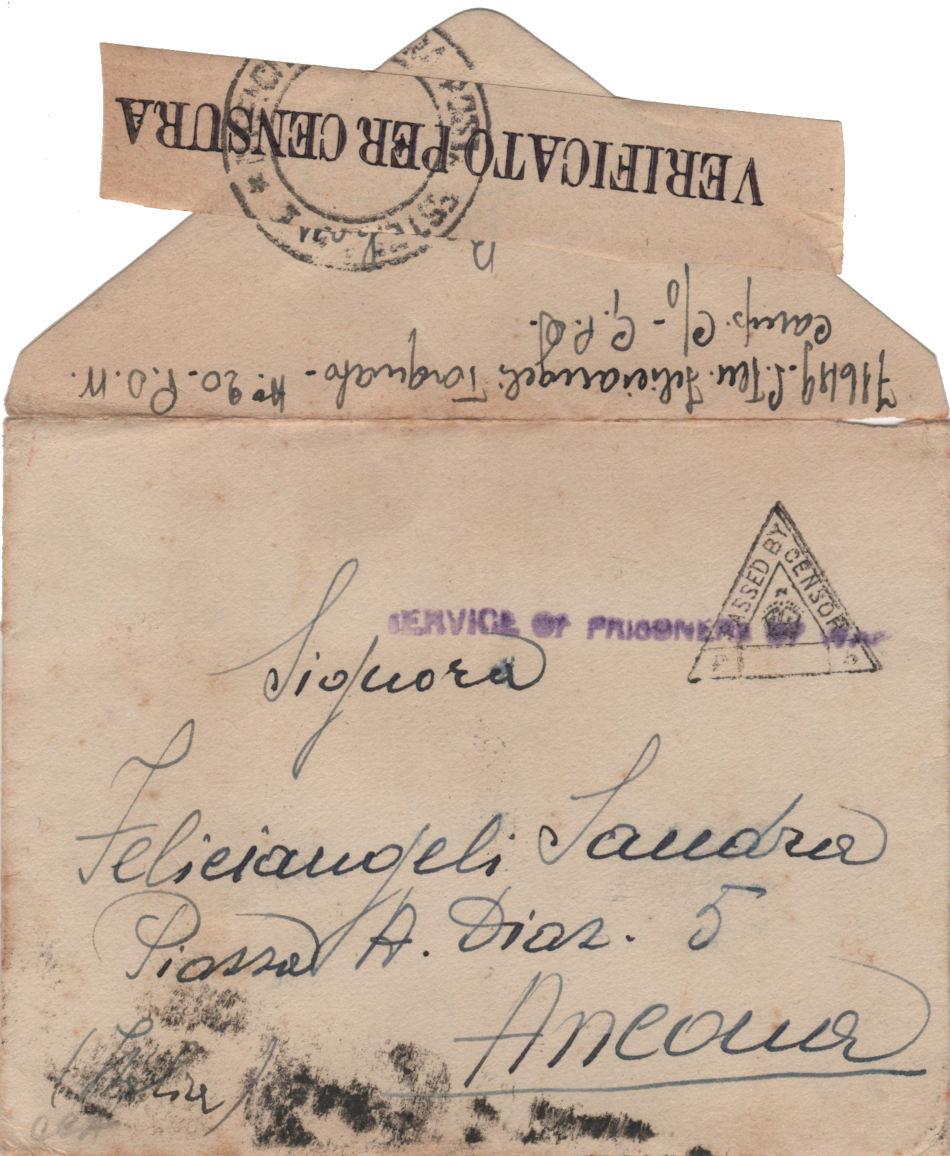 VERIFICATO PER CENSURA
716419. S.Ten. Feliciangeli Torquato - N° 20 - P.O.W.
Camp. C/o - G.P.O.
PASSED BY
CENSOR
SERVICE OF PRISONERS OF WAR
Signora
Feliciangeli Sandra
Piazza A. Diaz. 5
Ancona
(Italia)